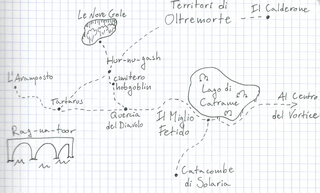 Territori di
Oltremorte
Il Calderone
Le Nove Gole
Hur-nu-gash
cimitero
hobgoblin
L'Avamposto
Tartarus
Quercia
del Diavolo
Il Miglio
Fetido
Lago di
Catrame
Al Centro
del Vortice
Rag-na-toor
Catacombe
di Solaria